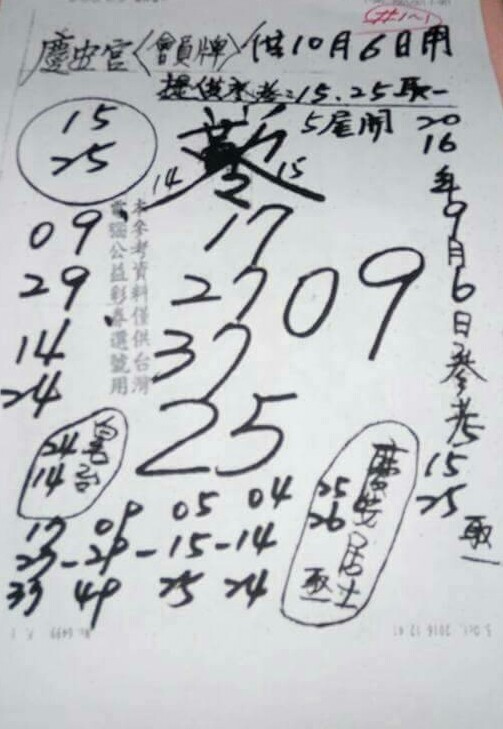 慶安宮〈會員牌〉供10月6日用
提供參考:15.25取一
5尾開
15
25
14
15
09
29
14
24
17
27
37
09
25
本參考資料僅供台灣
電腦公益彩券選號用
2016年9月6日參考15 25取一
24
14
25
26
慶安居士
取一
17 09 05 04
27-29-15-14
39 49 25 24